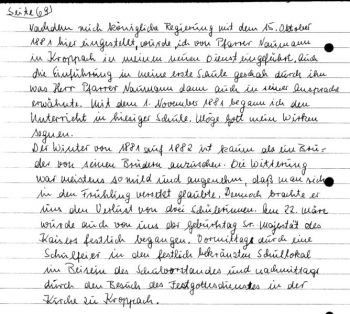 Seite 69)
Nachdem mich königliche Regierung mit dem 15. Oktober
1881 hier eingestellt, würde ich von Pfarrer Naumann
in Kroppach in meinen neuen Dienst eingeführt. Auch
die Einführung in meine erste Schule geschah durch ihn
was Herr Pfarrer Naumann dann auch in seiner Ansprache
erwähnte. Mit dem 1. November 1881 begann ich den
Unterricht in hiesiger Schule. Möge Gott mein Wirken
segnen.
Der Winter von 1881 auf 1882 ist kaum als ein Bru-
der von seinen Brüdern anzusehen. Die Witterung
war meistens so mild und angenehm, daß man sich
in den Frühling versetzt glaubte. Dennoch brachte er
uns den Verlust von drei Schülerinnen. Am 22. März
würde auch von uns der Geburtstag Sr. Majestät des
Kaisers festlich begangen. Vormittags durch eine
Schulfeier in dem festlich bekränzten Schullokal
im Beisein des Schulvorstandes und nachmittags
durch den Besuch des Festgottesdienstes in der
Kirche zu Kroppach.